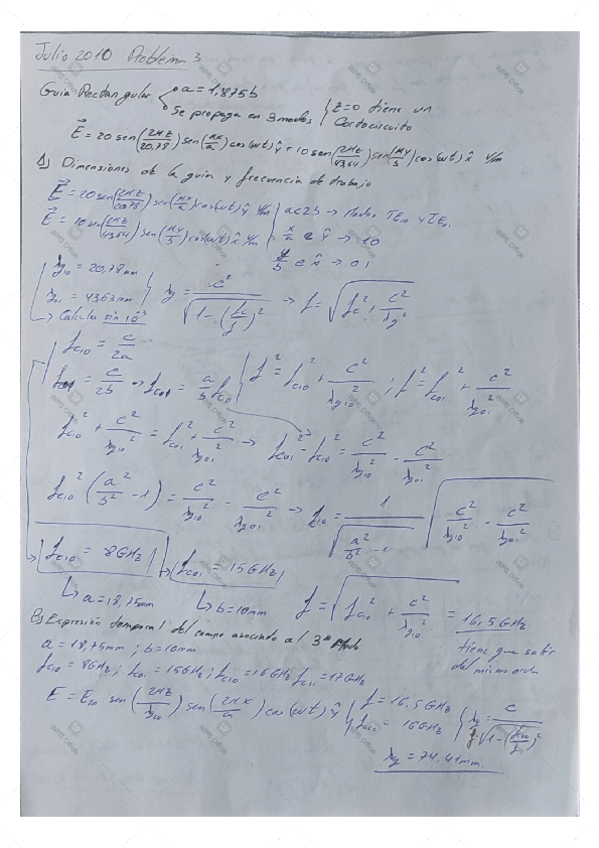 Julio 2010 Problema 3
Guía Rectangular { a = 1,875b
Se propaga en 3 modos { z=0 tiene un Cortocircuito
E⃗ = 20 sen(2πz/20,78) sen(πx/a) cos(ωt) ŷ + 10 sen(2πz/43,64) sen(πy/b) cos(ωt) x̂ V/m
A) Dimensiones de la guía y frecuencia de trabajo
E⃗ = 20 sen(2πz/20,78) sen(πx/a) cos(ωt) ŷ V/m | a<2b → Modos TE10 y TE01
E⃗ = 10 sen(2πz/43,64) sen(πy/b) cos(ωt) x̂ V/m | x/a e ŷ → 10
y/b e x̂ → 01
λg10 = 20,78mm
λg01 = 43,63mm } λg = c² / √(1-(fc/f)²) → f = √(fc² + c²/λg²)
→ Calculo sin 10⁻³
fc10 = c/2a
fc01 = c/2b → fc01 = a/b fc10 | f² = fc10² + c²/λg10² ; f² = fc01² + c²/λg01²
fc10² + c²/λg10² = fc01² + c²/λg01² → fc01² - fc10² = c²/λg10² - c²/λg01²
fc10² (a²/b² - 1) = c²/λg10² - c²/λg01² → fc10 = 1/√(a²/b² - 1) √(c²/λg10² - c²/λg01²)
fc10 = 8GHz fc01 = 15GHz
↳ a = 18,75mm ↳ b = 10mm f = √(fc10² + c²/λg10²) = 16,5GHz
tiene que salir del mismo orden
B) Expresión temporal del campo asociado al 3er Modo
a = 18,75mm ; b = 10mm
fc10 = 8GHz ; fc01 = 15GHz ; fc20 = 16GHz fc11 = 17GHz
E = E20 sen(2πz/λg20) sen(2πx/a) cos(ωt) ŷ { f = 16,5GHz
fc20 = 16GHz { λg = c / f√(1-(fc20/f)²)
λg = 74,41mm